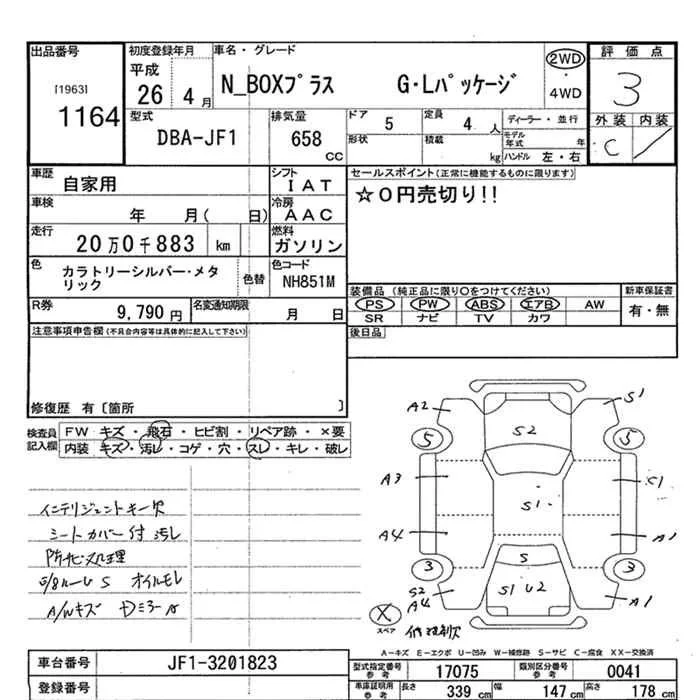 出品番号
[1963]
1164
初度登録年月
平成
26 4月
車名・グレード
N_BOXプラス G・Lパッケージ
2WD
・
4WD
評価点
3
外装 内装
C
型式
DBA-JF1
排気量
658
CC
ドア 5
定員 4 人
形状
積載 kg
ディーラー・並行
モデル年式 年
ハンドル 左・右
車歴
自家用
シフト
IAT
車検
年 月( 日)
冷房
AAC
走行
20万0千883 km
燃料
ガソリン
色
カラトリーシルバー・メタリック
色替
色コード
NH851M
R券
9,790円
名変通知期限
月 日
セールスポイント(正常に機能するものに限ります)
☆0円売切り!!
装備品 (純正品に限り○をつけてください)
PS PW ABS エアB AW
SR ナビ TV カワ
新車保証書
有・無
後日品
注意事項申告欄(不具合内容等は具体的に記入して下さい)
修復歴 有〔箇所 〕
検査員記入欄
FW キズ・飛石・ヒビ割・リペア跡・×要
内装 キズ・汚レ・コゲ・穴・スレ・キレ・破レ
インテリジェントキー欠
シートカバー付 汚レ
オイルモレ
A/Wキズ
A2
S1
5
S2
5
A3
S1
C1
A4
A1
3
S
3
S2
A4
S1 U2
A1
X
スペア
A-キズ E-エクボ U-凹み W-補修跡 S-サビ C-腐食 XX-交換済
車台番号
JF1-3201823
登録番号
型式指定番号
参考
17075
類別区分番号
参考
0041
車庫証明用
参考
長さ 339 cm
幅 147 cm
高さ 178 cm